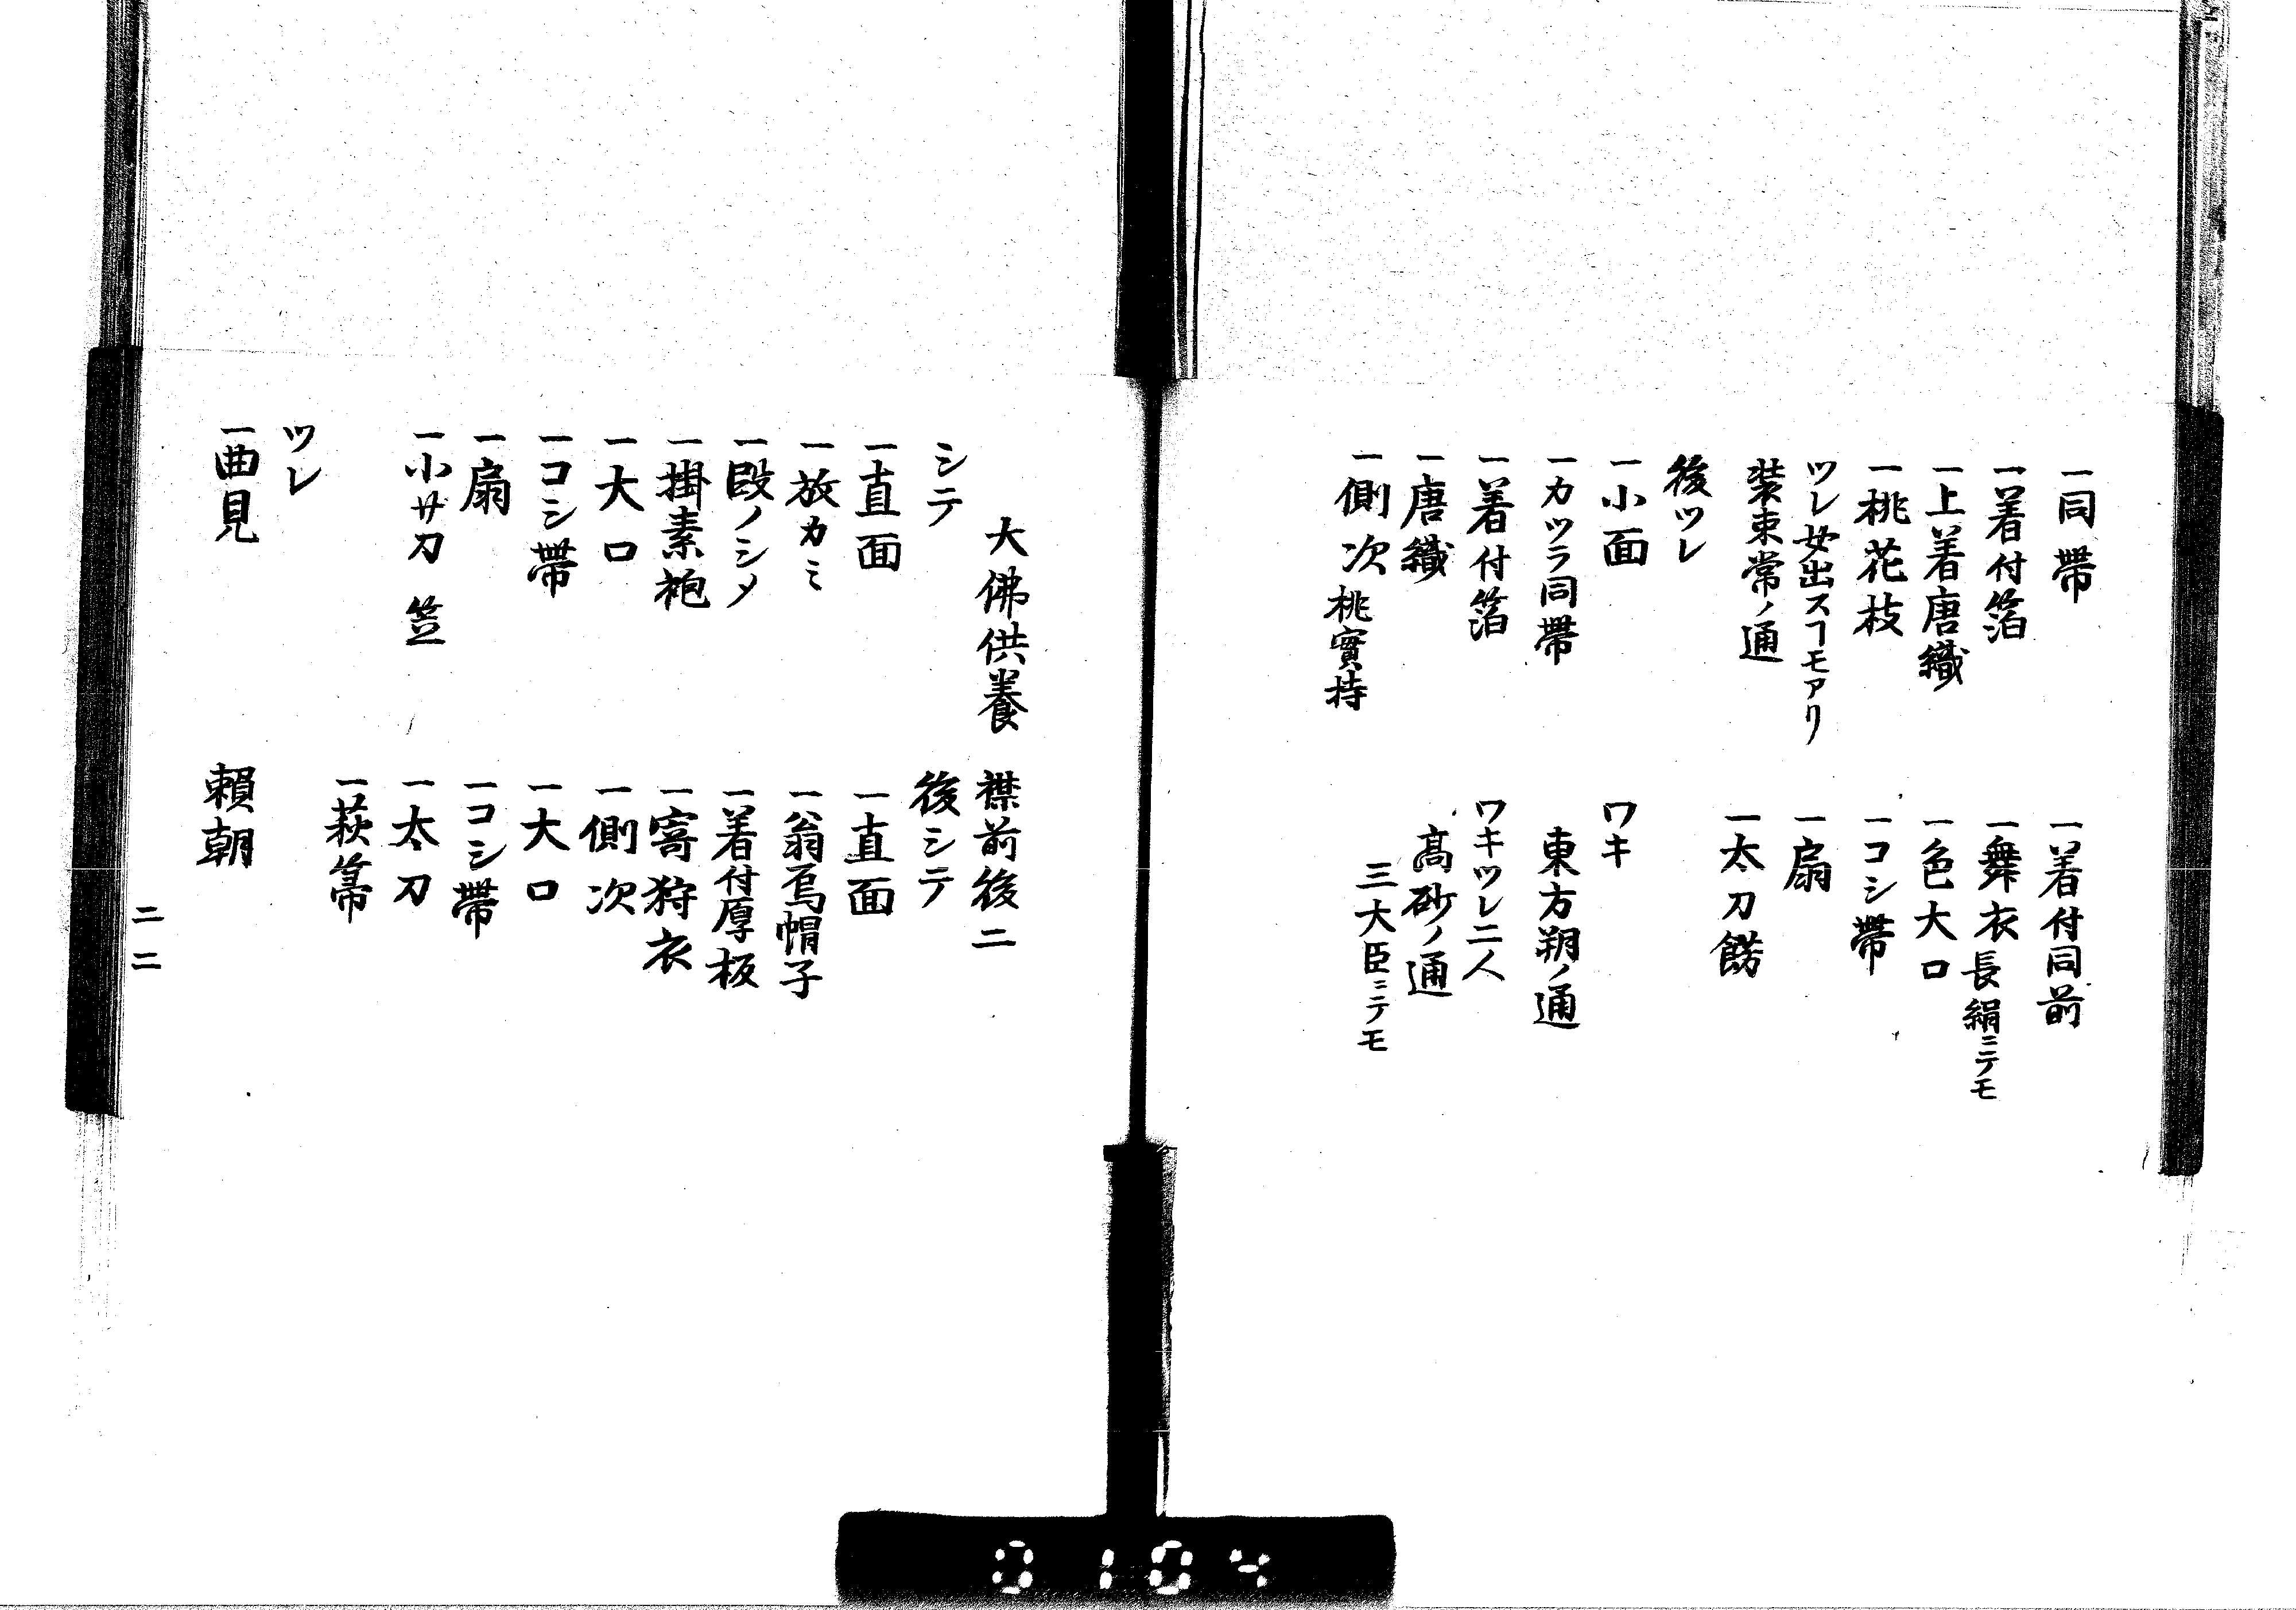 一同帶
一着付箔
一上着唐織
一桃花枝
ツレ女出スヿモアリ
装束常ノ通
後ツレ
一小面
一カツラ同帶
一着付箔
一唐織
一側次桃實持
一着付同前
一舞衣長絹ニテモ
一色大口
一コシ帶
一扇
一太刀
ワキ
東方朔ノ通
ワキツレ二人
高砂ノ通
三大臣ニテモ
大佛供養
シテ
一直面
一放カミ
一段ノシメ
一掛素袍
一大口
一コシ帶
一扇
一小サ刀 笠
ツレ
一曲見
襟前後二
後シテ
一直面
一翁烏帽子
一着付厚板
一寄狩衣
一側次
一大口
一コシ帶
一太刀
一萩箒
頼朝
二二
0104